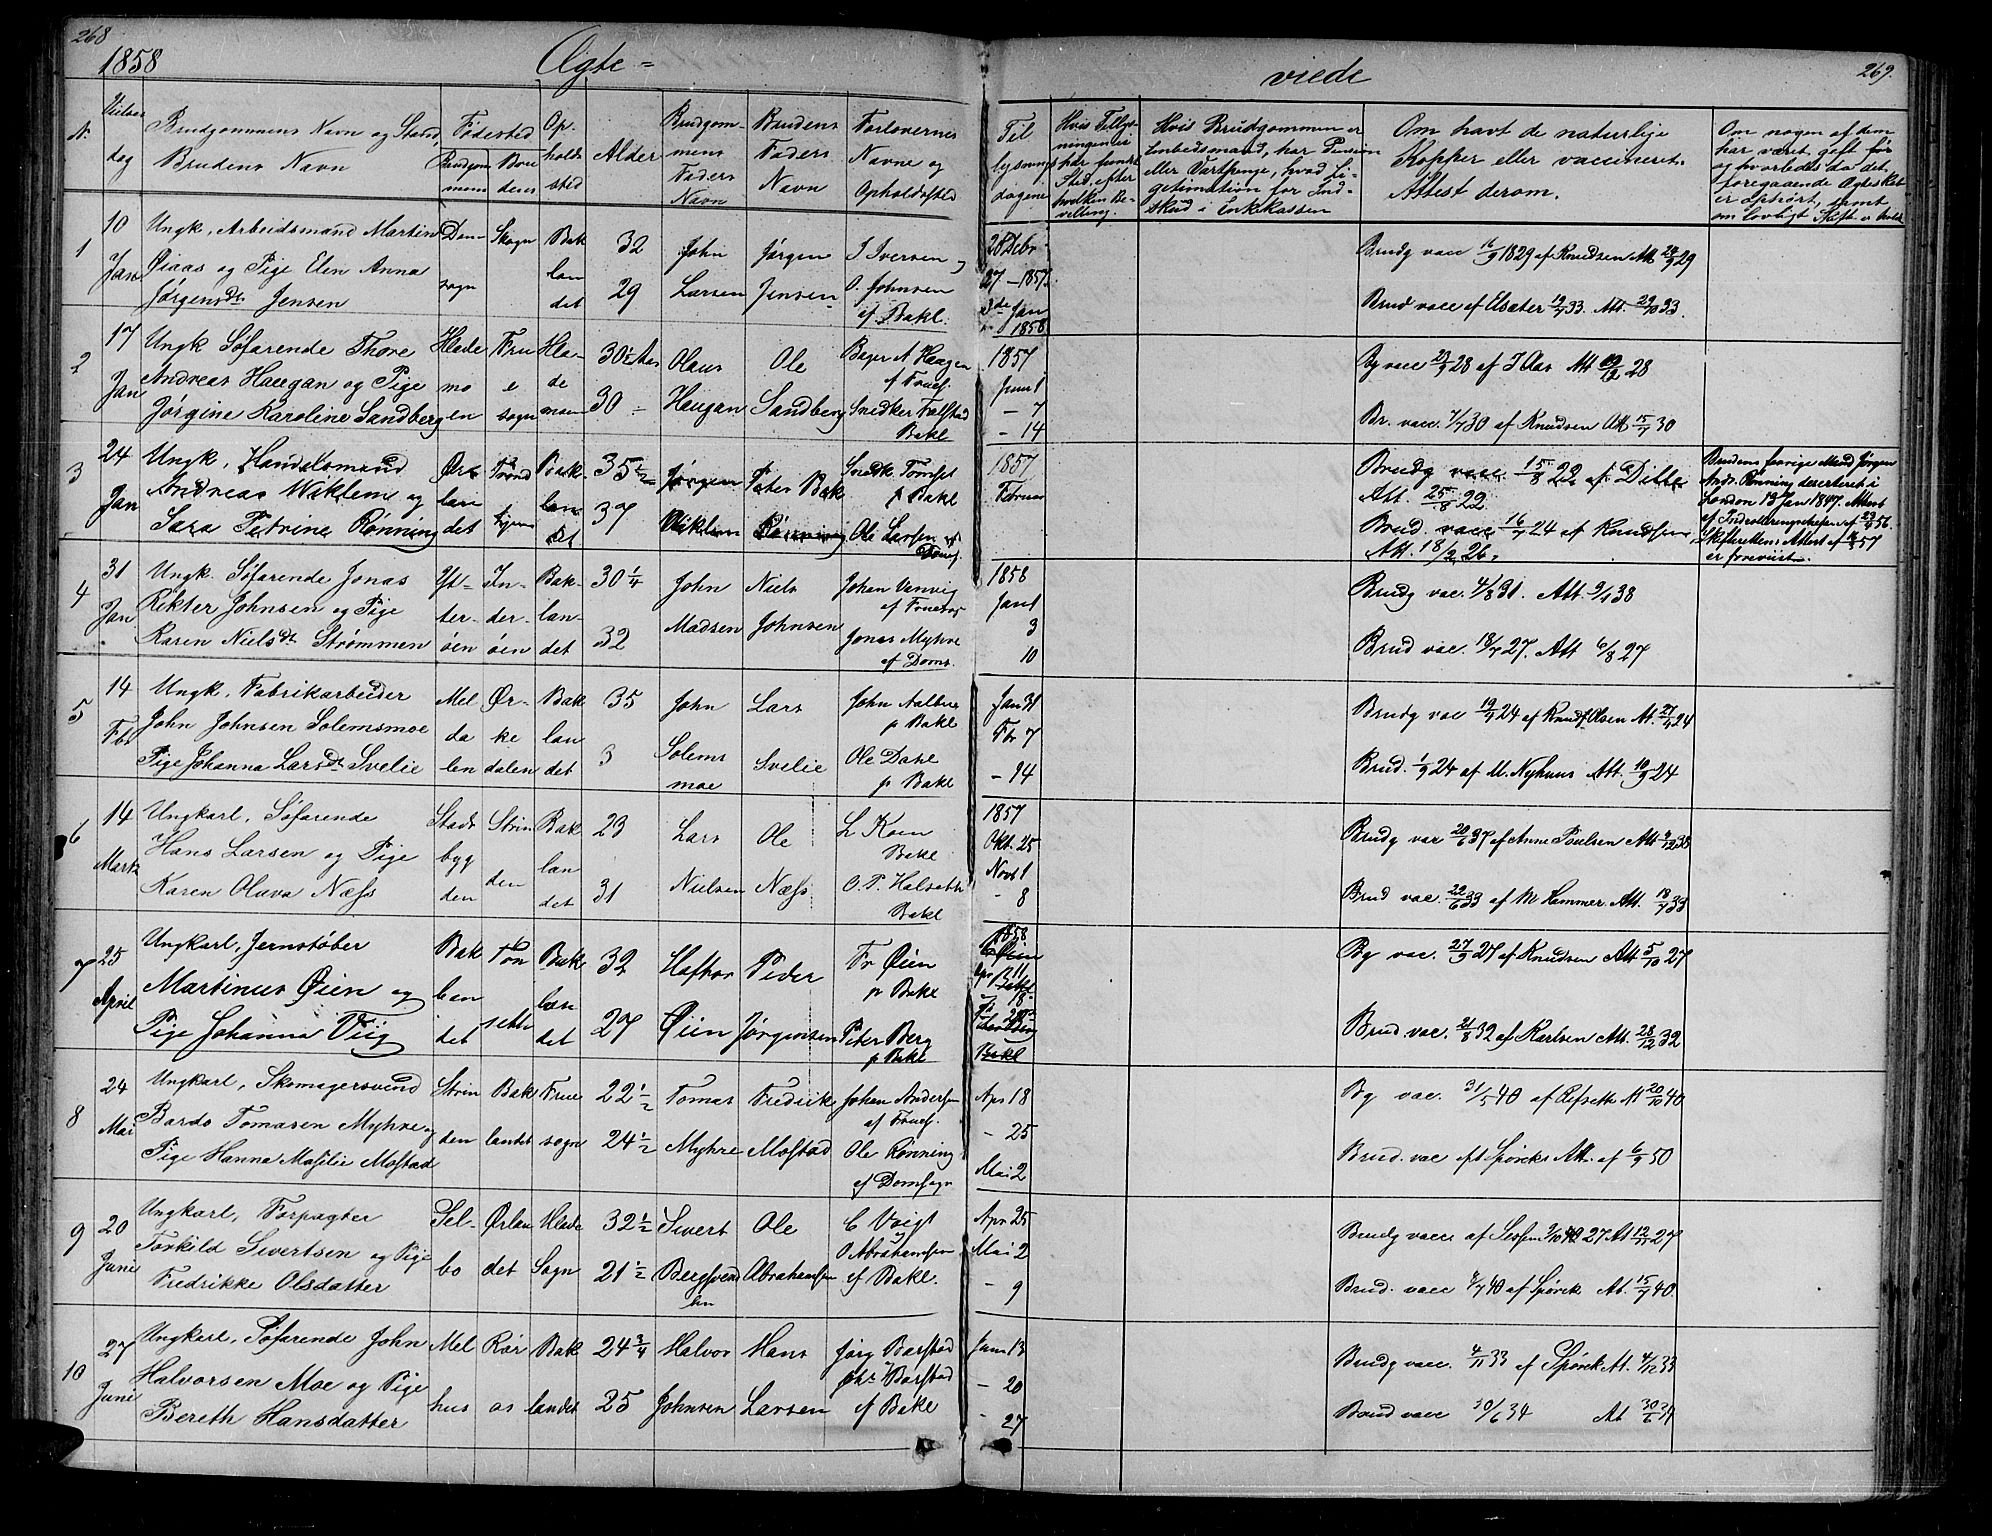 268
1858
Ægte =
viede
269.
N.
Vielses
dag
Brudgommens Navn og Stand,
Brudens Navn
Fødested
Brudgom
mens
Bru
dens
Op.
holds
sted
Alder
Brudgom-
mens
Faders
Navn
Brudens
Faders
Navn
Forlovernes
Navne og
Opholdssted
Til
lysnings
dagene
Hvis Tillys-
ningen ei
har fundet
Sted, efter
hvilken Be-
villing.
Hvis Brudgommen er
Embedsmand, har Pension
eller Vartpenge, hvad Li-
gitimation for Ind-
skud i Enkekassen
Om havt de naturlige
Kopper eller vaccineret.
Attest derom.
Om nogen af dem
har været gift før
og hvorledes da det
foregaaende Ægteskab
er ophørt, samt
om lovligt Skifte er holdt
1
10
Jan
Ungk, Arbeidsmand Martin
Øiaas og Pige Elen Anna
Jørgensdt. Jensen
Dom
sogn
Skogn
Bak
lan
det
32
29
John
Larsen
Jørgen
Jensen
I Iversen og
O. Johnsen
af Bakl.
20 Debr
27 - 1857.
3de Jan
1858.
Brudg vac 16/9 1829 af Knudsen Att 24/9 29
Brud vacc af Elsæter 19/7 33. Att. 29/10 33.
2
17
Jan
Ungk Søfarende Thore
Andreas Haugan og Pige
Jørgine Karoline Sandberg
Hlade
mo
en
Fru
e
sogn
Hla-
de
moen
30½ Aar
30 -
Olaus
Haugan
Ole
Sandberg
Bager A Haugen
af Fruesf.
Snedker Falstad
Bakl
1857
Juni 1
- 7
- 14
Bg vacc 21/7 28 af I Aas Att 19/12 28
Br. vacc. 7/7 30 af Knudsen Att 15/7 30
3
24
Jan
Ungk, Handelsmand
Andreas Wiklem og
Sara Petrine Rønning
Ør
lan
det
Trond
hjem
Bak
lan
det
35½
37
Jørgen
Wiklem
Peter Bak
Rønning
Snedk. Tomset
p Bakl
Ole Larsen af
Domsf.
1857
Februar
Brudg vacc. 15/8 22 af Ditlev
Att 25/8 22.
Brud. vacc 16/7 24 af Knudsen
Att. 18/2 26.
Brudens forrige Mand Jørgen
Andr. Rønning deserteret i
London 19 Jan 1847. Attest
af Indrolleringschefen af 29/9 56.
Skifterettens Attest af 4/2 57
er foreviist.
4
31
Jan
Ungk. Søfarende Jonas
Rekter Johnsen og Pige
Karen Nielsdt. Strømmen
Yt-
ter-
øen
In-
der-
øen
Bak-
lan-
det
30¼
32
John
Madsen
Niels
Johnsen
Johan Vanvig
af Fruesog
Jonas Myhre
af Doms.
1858
Jan 1
3
10
Brudg vac. 4/8 31. Att. 9/1 38
Brud vac. 18/7 27. Att 6/8 27
5
14
Fbr
Ungk, Fabrikarbeider
John Johnsen Solemsmoe
Pige Johanna Larsdt. Svelie
Mel
da
len
Ør-
ke
dalen
Bak
lan
det
35
3
John
Solems
moe
Lars
Svelie
John Aalberg
p Bakl
Ole Dahl
p Bakl
Jan 31
Fbr 7
- 14
Brudg vac 19/9 24 af Knud Olsen At. 27/9 24
Brud. 1/9 24 af M. Nyhuus Att. 10/9 24
6
14
Marts
Ungkarl, Søfarende
Hans Larsen og Pige
Karen Oluva Næss
Stads
byg
den
Strin
den
Bak
lan
det
23
31
Lars
Nielsen
Ole
Næss
L Koen
Bakl
O. P. Halseth
Bakl
1857
Okt. 25
Novb 1
- 8
Brudg vac 20/6 37 af Anne Poulsen Att 4/12 38
Brud vac. 22/6 33 af M Hammer Att. 18/7 33
7
25
April
Ungkarl, Jernstøber
Martinus Øien og
Pige Johanna Viig
Bak
lan
det
Ton
seth
Bak
lan
det
32
27
Hafthor
Øien
Peder
Jørgensen
Fr Øien
p Bakl
Peter Berg
p Bakl
1858
Apr 11
18
25
Bakl
Bg vac. 27/9 27 af Knudsen Att 5/10 27
Brud vac. 21/8 32 af Karlsen Att. 28/12 32
8
24
Mai
Ungkarl, Skomagersvend
Bardo Tomasen Myhre og
Pige Hanna Masilie Mostad
Strin
den
Bak
landet
Frue
sogn
22½
24½
Tomas
Myhre
Fredrik
Mostad
Johan Andersen
af Fruesf.
Ole Rønning
af Domsogn
Apr 18
- 25
Mai 2
Bg vac. 31/5 40 af Refseth At 20/10 40
Brud. vac af Spørck Att. af 6/9 50
9
20
Juni
Ungkarl, Forpagter
Torkild Sivertsen og Pige
Fredrikke Olsdatter
Sel-
bo
Ørlan
det
Hlade
Sogn
32½
21½
Sivert
Bergsvend
sen
Ole
Abrahamsen
C Voigt
og
O Abrahamsen
af Bakl.
Apr 25
Mai 2
- 9
Brud. vacc 4/7 40 af Spørck At. 15/7 40.
10
27
Juni
Ungkerl, Søfarende John
Halvorsen Moe og Pige
Bereth Hansdatter
Mel
hus
Rør
os
Bak
landet
24¾
25
Halvor
Johnsen
Hans
Larsen
Jørg Barstad
Chr. Barstad
af Bakl
Juni 13
- 20
- 27
Brudg vacc. 4/11 33 af Spørck At. 4/12 33
Brud vacc 30/6 34 At 30/6 34